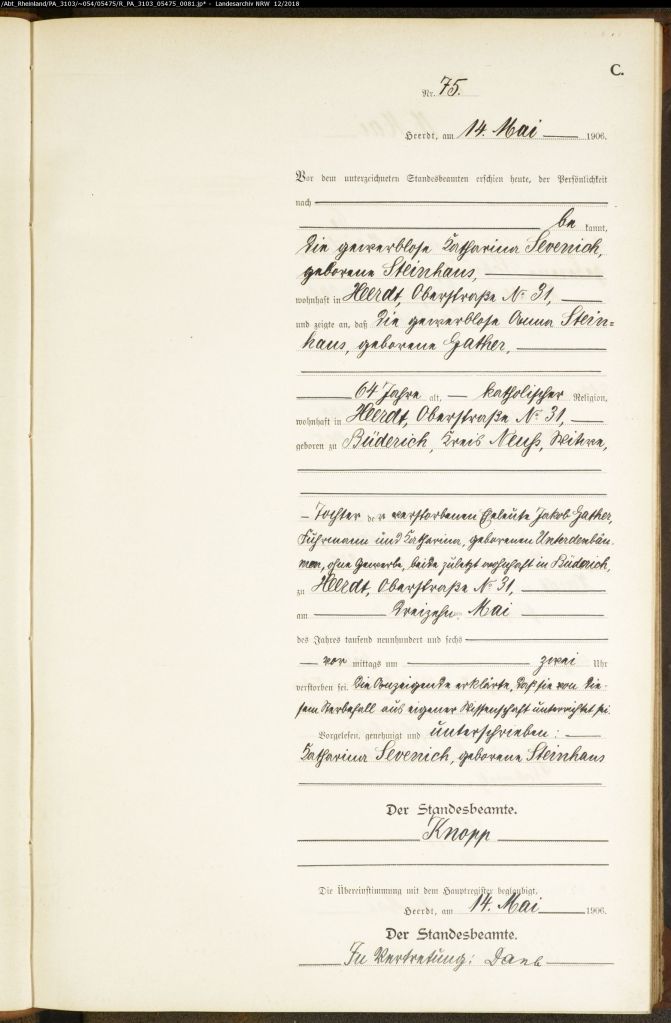 /Abt_Rheinland/PA_3103/~054/05475/R_PA_3103_05475_0081.jp* - Landesarchiv NRW 12/2018
C.
Nr. 75.
Heerdt, am 14. Mai 1906.
Vor dem unterzeichneten Standesbeamten erschien heute, der Persönlichkeit
nach
be kannt,
die gewerblose Katharina Sevenich,
geborene Steinhaus,
wohnhaft in Heerdt, Oberstraße No 31,
und zeigte an, daß die gewerblose Anna Stein=
haus, geborene Gather,
64 Jahre alt, katholischer Religion,
wohnhaft in Heerdt, Oberstraße No 31,
geboren zu Büderich, Kreis Neuß, Witwe,
Tochter der verstorbenen Eheleute Jakob Gather,
Fuhrmann und Katharina, geborenen Unterdenbäu=
men, ohne Gewerbe, beide zuletzt wohnhaft in Büderich,
zu Heerdt, Oberstraße No 31,
am dreizehn Mai
des Jahres tausend neunhundert und sechs
vor mittags um zwei Uhr
verstorben sei. Die Anzeigende erklärte, daß sie von die=
sem Sterbefall aus eigener Wissenschaft unterrichtet sei.
Vorgelesen, genehmigt und unterschrieben:
Katharina Sevenich, geborene Steinhaus
Der Standesbeamte.
Knopp
Die Übereinstimmung mit dem Hauptregister beglaubigt.
Heerdt, am 14. Mai 1906.
Der Standesbeamte.
In Vertretung: